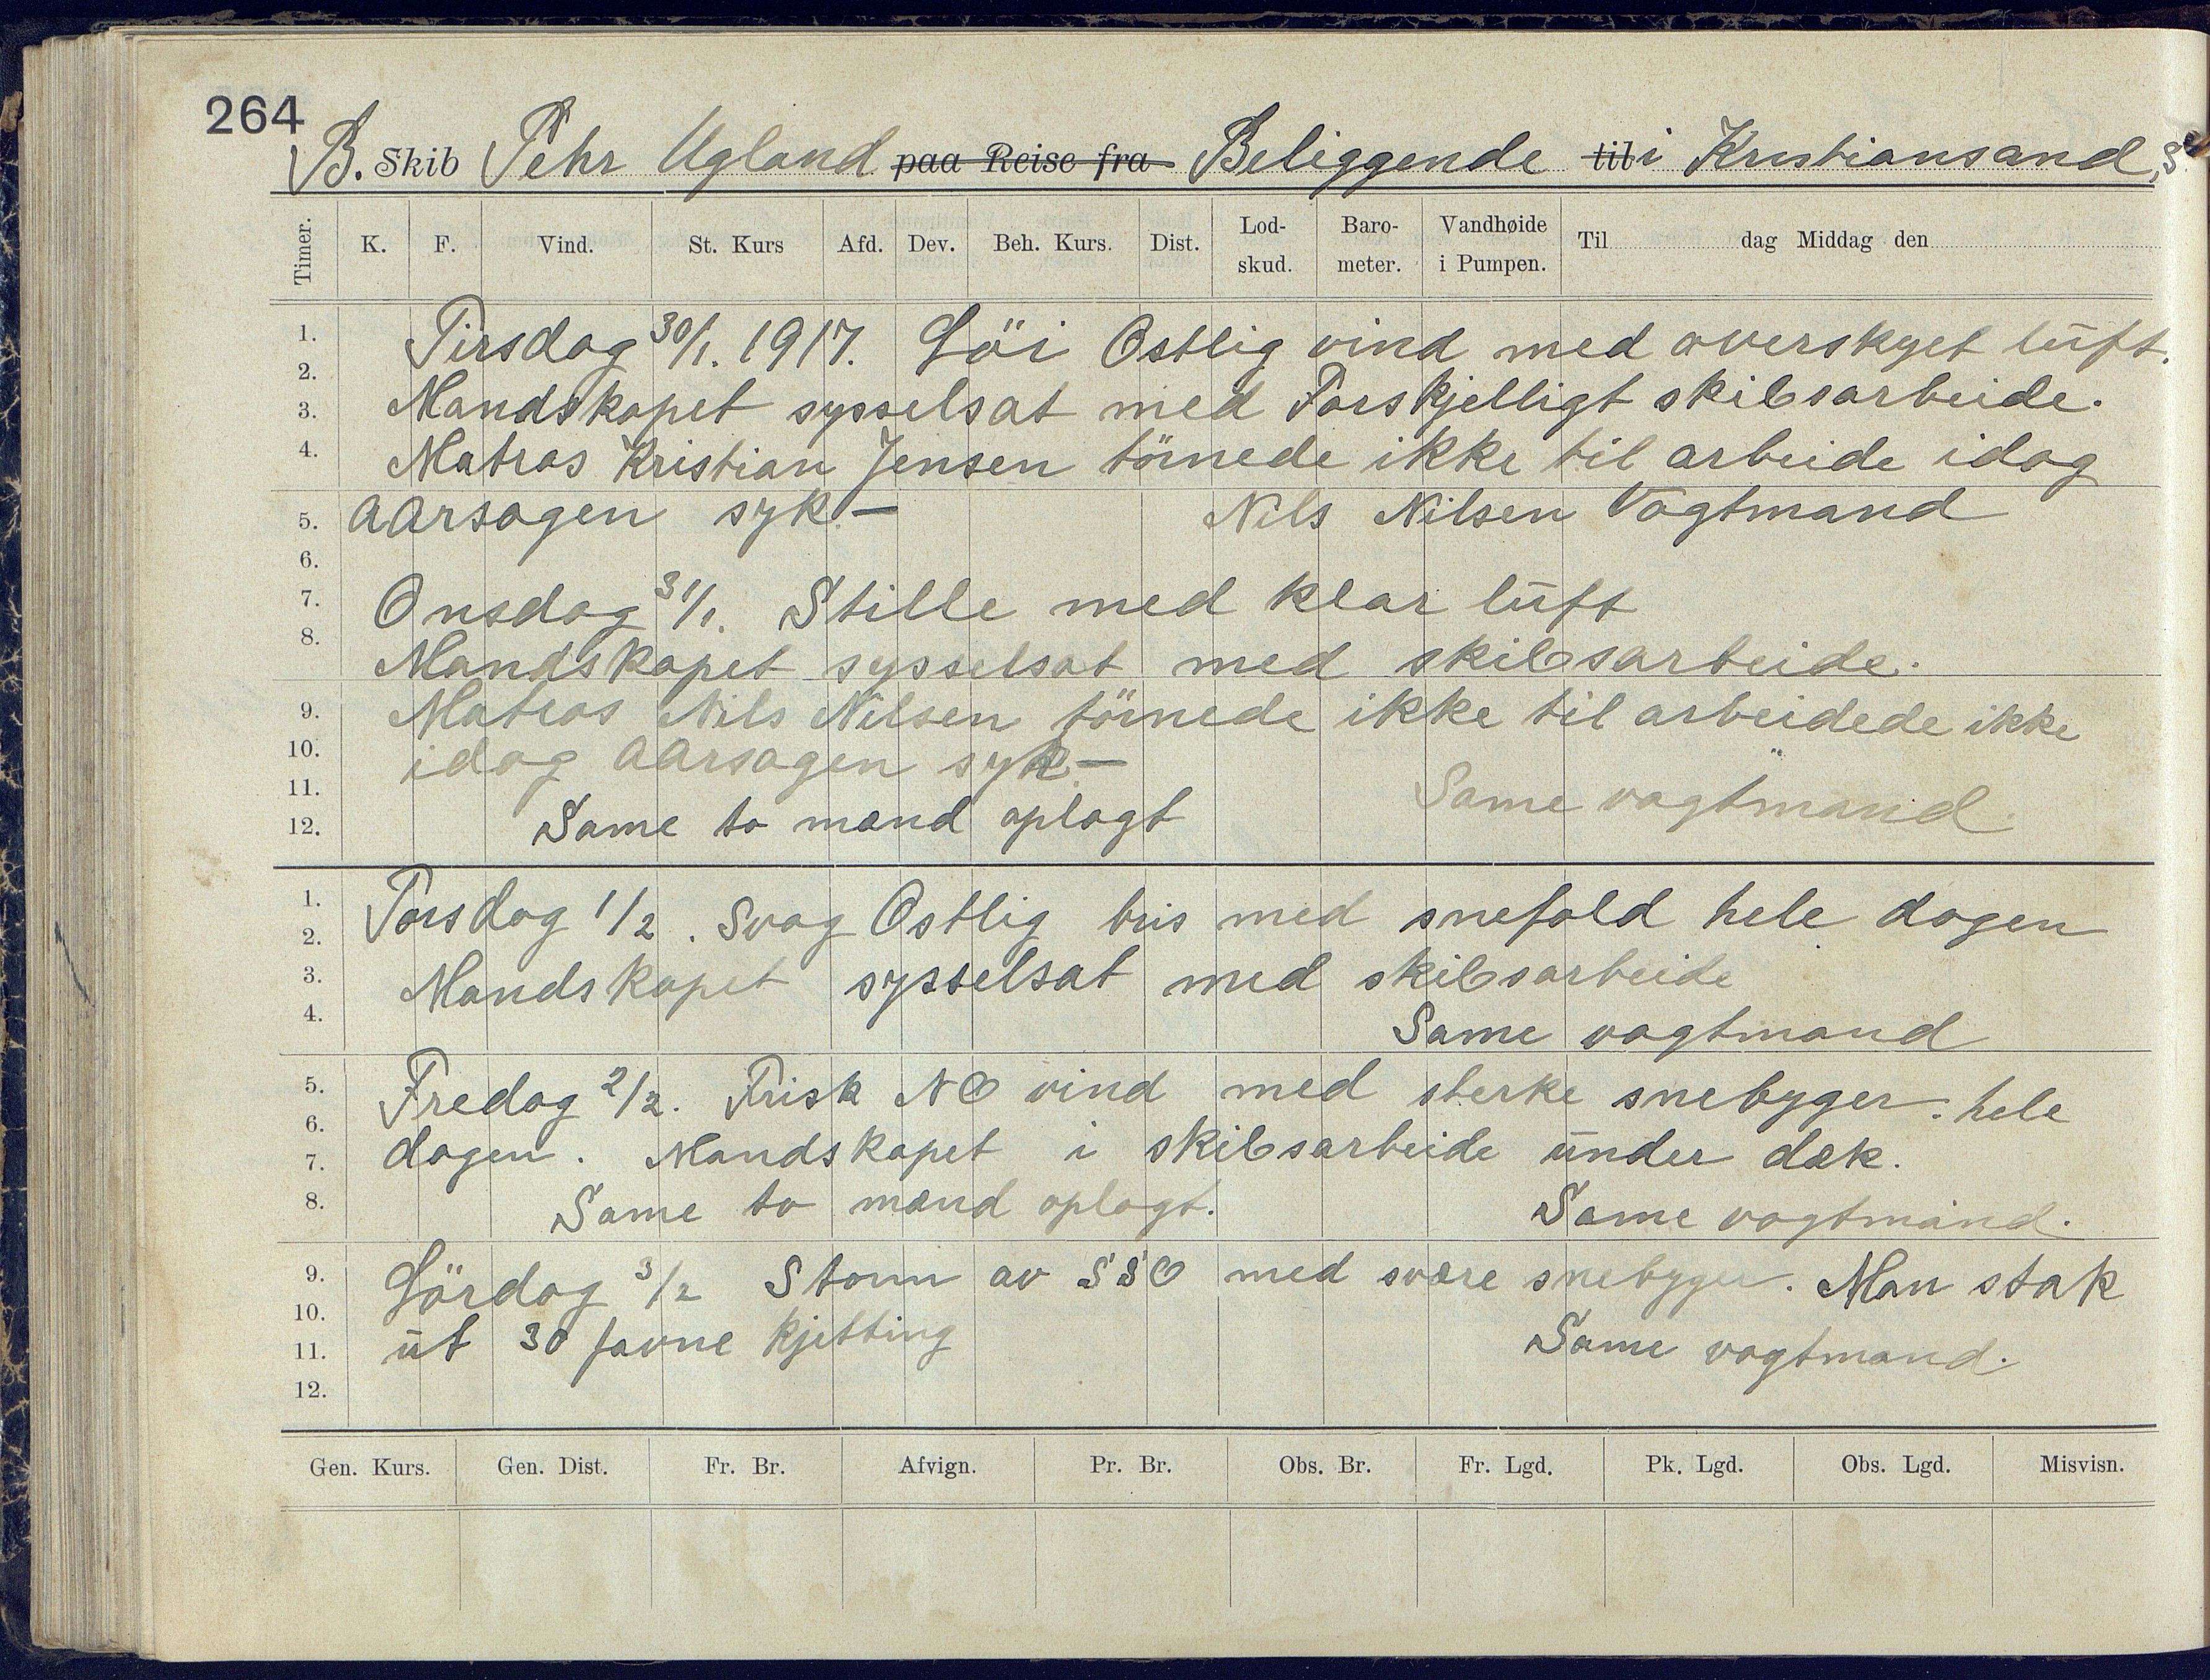 264
B. Skib Pehr Ugland paa Reise fra Beliggende til i Kristiansand, S.
Timer. K. F. Vind. St. Kurs Afd. Dev. Beh. Kurs. Dist. Lod-skud. Baro-meter. Vandhøide i Pumpen. Til dag Middag den
1. Tirsdag 30/1. 1917. Löi Ostlig vind med overskyet luft.
2.
3. Mandskapet sysselsat med Forskjelligt skibsarbeide.
4. Matros Kristian Jensen törnede ikke til arbeide idag
5. aarsagen syk. — Nils Nilsen Vagtmand
6.
7. Onsdag 31/1. Stille med klar luft
8. Mandskapet sysselsat med skibsarbeide.
9. Matros Nils Nilsen törnede ikke til arbeidede ikke
10. idag aarsagen syk —
11. Same vagtmand
12. Same to mænd oplagt
1. Torsdag 1/2. Svag Ostlig bris med snefald hele dagen
2.
3. Mandskapet sysselsat med skibsarbeide
4. Same vagtmand
5. Fredag 2/2. Frisk NO vind med sterke snebyger. hele
6.
7. dagen. Mandskapet i skibsarbeide under dæk.
8. Same to mænd oplagt. Same vagtmand.
9. Lördag 3/2 Storm av SSO med svære snebyger. Man stak
10.
11. ut 30 favne kjetting Same vagtmand.
12.
Gen. Kurs. Gen. Dist. Fr. Br. Afvign. Pr. Br. Obs. Br. Fr. Lgd. Pk. Lgd. Obs. Lgd. Misvisn.